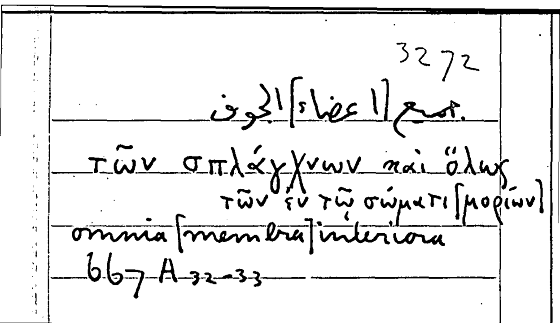 3272
جميع [اعضاء] الجوف
τῶν σπλάγχνων καὶ ὅλως
τῶν ἐν τῷ σώματι [μορίων]
omnia [membra] interiora
667 A 32-33